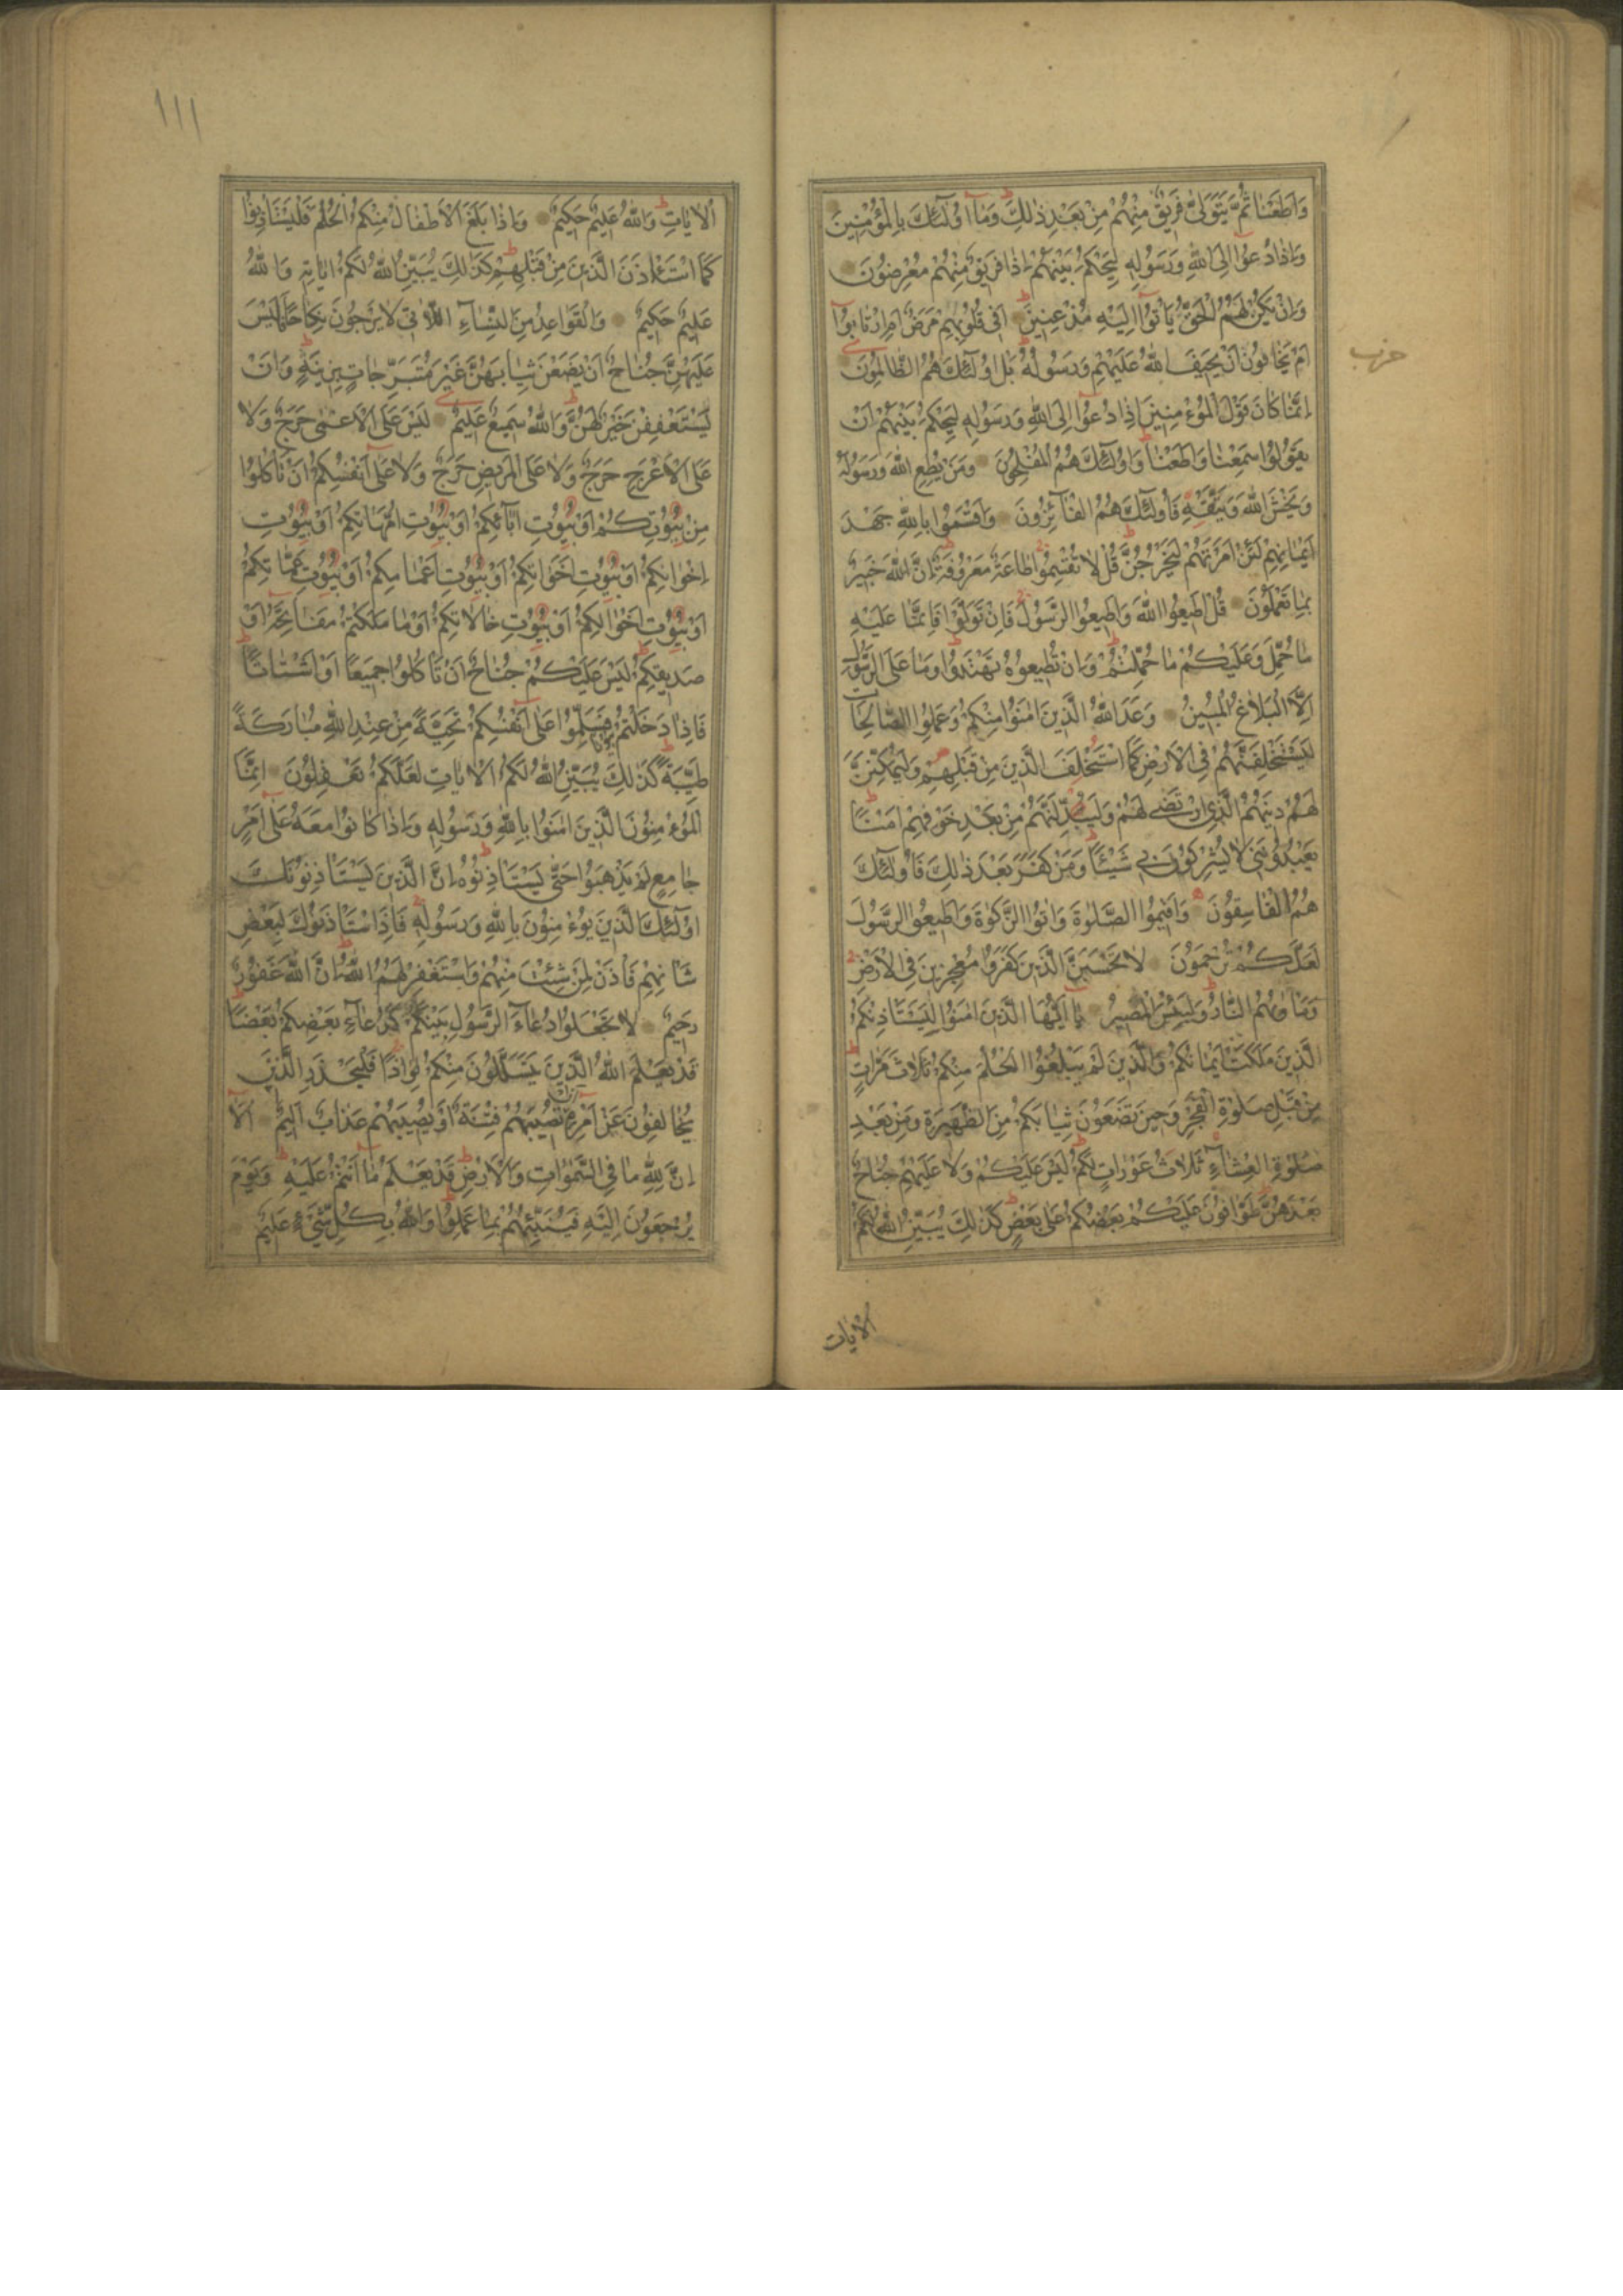 وَاَطَعْنَا ثُمَّ يَتَوَلّٰى فَرِيقٌ مِنْهُمْ مِنْ بَعْدِ ذٰلِكَ وَمَٓا اُولٰٓئِكَ بِالْمُؤْمِنِينَ
وَاِذَا دُعُٓوا اِلَى اللّٰهِ وَرَسُولِهِ لِيَحْكُمَ بَيْنَهُمْ اِذَا فَرِيقٌ مِنْهُمْ مُعْرِضُونَ
وَاِنْ يَكُنْ لَهُمُ الْحَقُّ يَأْتُٓوا اِلَيْهِ مُذْعِنِينَ اَفِى قُلُوبِهِمْ مَرَضٌ اَمِ ارْتَابُٓوا
حزب
اَمْ يَخَافُونَ اَنْ يَحِيفَ اللّٰهُ عَلَيْهِمْ وَرَسُولُهُ بَلْ اُولٰٓئِكَ هُمُ الظَّالِمُونَ
اِنَّمَا كَانَ قَوْلَ الْمُؤْمِنِينَ اِذَا دُعُٓوا اِلَى اللّٰهِ وَرَسُولِهِ لِيَحْكُمَ بَيْنَهُمْ اَنْ
يَقُولُوا سَمِعْنَا وَاَطَعْنَا وَاُولٰٓئِكَ هُمُ الْمُفْلِحُونَ وَمَنْ يُطِعِ اللّٰهَ وَرَسُولَهُ
وَيَخْشَ اللّٰهَ وَيَتَّقْهِ فَاُولٰٓئِكَ هُمُ الْفَٓائِزُونَ وَاَقْسَمُوا بِاللّٰهِ جَهْدَ
اَيْمَانِهِمْ لَئِنْ اَمَرْتَهُمْ لَيَخْرُجُنَّ قُلْ لَا تُقْسِمُوا طَاعَةٌ مَعْرُوفَةٌ اِنَّ اللّٰهَ خَبِيرٌ
بِمَا تَعْمَلُونَ قُلْ اَطِيعُوا اللّٰهَ وَاَطِيعُوا الرَّسُولَ فَاِنْ تَوَلَّوْا فَاِنَّمَا عَلَيْهِ
مَا حُمِّلَ وَعَلَيْكُمْ مَا حُمِّلْتُمْ وَاِنْ تُطِيعُوهُ تَهْتَدُوا وَمَا عَلَى الرَّسُولِ
اِلَّا الْبَلَاغُ الْمُبِينُ وَعَدَ اللّٰهُ الَّذِينَ اٰمَنُوا مِنْكُمْ وَعَمِلُوا الصَّالِحَاتِ
لَيَسْتَخْلِفَنَّهُمْ فِى الْاَرْضِ كَمَا اسْتَخْلَفَ الَّذِينَ مِنْ قَبْلِهِمْ وَلَيُمَكِّنَنَّ
لَهُمْ دِينَهُمُ الَّذِى ارْتَضٰى لَهُمْ وَلَيُبَدِّلَنَّهُمْ مِنْ بَعْدِ خَوْفِهِمْ اَمْنًا
يَعْبُدُونَنِى لَا يُشْرِكُونَ بِى شَيْئًا وَمَنْ كَفَرَ بَعْدَ ذٰلِكَ فَاُولٰٓئِكَ
هُمُ الْفَاسِقُونَ وَاَقِيمُوا الصَّلٰوةَ وَاٰتُوا الزَّكٰوةَ وَاَطِيعُوا الرَّسُولَ
لَعَلَّكُمْ تُرْحَمُونَ لَا تَحْسَبَنَّ الَّذِينَ كَفَرُوا مُعْجِزِينَ فِى الْاَرْضِ
وَمَأْوٰيهُمُ النَّارُ وَلَبِئْسَ الْمَصِيرُ يَٓا اَيُّهَا الَّذِينَ اٰمَنُوا لِيَسْتَأْذِنْكُمُ
الَّذِينَ مَلَكَتْ اَيْمَانُكُمْ وَالَّذِينَ لَمْ يَبْلُغُوا الْحُلُمَ مِنْكُمْ ثَلَاثَ مَرَّاتٍ
مِنْ قَبْلِ صَلٰوةِ الْفَجْرِ وَحِينَ تَضَعُونَ ثِيَابَكُمْ مِنَ الظَّهِيرَةِ وَمِنْ بَعْدِ
صَلٰوةِ الْعِشَٓاءِ ثَلَاثُ عَوْرَاتٍ لَكُمْ لَيْسَ عَلَيْكُمْ وَلَا عَلَيْهِمْ جُنَاحٌ
بَعْدَهُنَّ طَوَّافُونَ عَلَيْكُمْ بَعْضُكُمْ عَلٰى بَعْضٍ كَذٰلِكَ يُبَيِّنُ اللّٰهُ لَكُمُ
الآيات
١١١
الْاٰيَاتِ وَاللّٰهُ عَلِيمٌ حَكِيمٌ وَاِذَا بَلَغَ الْاَطْفَالُ مِنْكُمُ الْحُلُمَ فَلْيَسْتَأْذِنُوا
كَمَا اسْتَأْذَنَ الَّذِينَ مِنْ قَبْلِهِمْ كَذٰلِكَ يُبَيِّنُ اللّٰهُ لَكُمْ اٰيَاتِهِ وَاللّٰهُ
عَلِيمٌ حَكِيمٌ وَالْقَوَاعِدُ مِنَ النِّسَٓاءِ اللَّاتِى لَا يَرْجُونَ نِكَاحًا فَلَيْسَ
عَلَيْهِنَّ جُنَاحٌ اَنْ يَضَعْنَ ثِيَابَهُنَّ غَيْرَ مُتَبَرِّجَاتٍ بِزِينَةٍ وَاَنْ
يَسْتَعْفِفْنَ خَيْرٌ لَهُنَّ وَاللّٰهُ سَمِيعٌ عَلِيمٌ لَيْسَ عَلَى الْاَعْمٰى حَرَجٌ وَلَا
عَلَى الْاَعْرَجِ حَرَجٌ وَلَا عَلَى الْمَرِيضِ حَرَجٌ وَلَا عَلٰٓى اَنْفُسِكُمْ اَنْ تَأْكُلُوا
مِنْ بُيُوتِكُمْ اَوْ بُيُوتِ اٰبَٓائِكُمْ اَوْ بُيُوتِ اُمَّهَاتِكُمْ اَوْ بُيُوتِ
اِخْوَانِكُمْ اَوْ بُيُوتِ اَخَوَاتِكُمْ اَوْ بُيُوتِ اَعْمَامِكُمْ اَوْ بُيُوتِ عَمَّاتِكُمْ
اَوْ بُيُوتِ اَخْوَالِكُمْ اَوْ بُيُوتِ خَالَاتِكُمْ اَوْ مَا مَلَكْتُمْ مَفَاتِحَهُٓ اَوْ
صَدِيقِكُمْ لَيْسَ عَلَيْكُمْ جُنَاحٌ اَنْ تَأْكُلُوا جَمِيعًا اَوْ اَشْتَاتًا
فَاِذَا دَخَلْتُمْ بُيُوتًا فَسَلِّمُوا عَلٰٓى اَنْفُسِكُمْ تَحِيَّةً مِنْ عِنْدِ اللّٰهِ مُبَارَكَةً
طَيِّبَةً كَذٰلِكَ يُبَيِّنُ اللّٰهُ لَكُمُ الْاٰيَاتِ لَعَلَّكُمْ تَعْقِلُونَ اِنَّمَا
الْمُؤْمِنُونَ الَّذِينَ اٰمَنُوا بِاللّٰهِ وَرَسُولِهِ وَاِذَا كَانُوا مَعَهُ عَلٰٓى اَمْرٍ
جَامِعٍ لَمْ يَذْهَبُوا حَتّٰى يَسْتَأْذِنُوهُ اِنَّ الَّذِينَ يَسْتَأْذِنُونَكَ
اُولٰٓئِكَ الَّذِينَ يُؤْمِنُونَ بِاللّٰهِ وَرَسُولِهِ فَاِذَا اسْتَأْذَنُوكَ لِبَعْضِ
شَأْنِهِمْ فَأْذَنْ لِمَنْ شِئْتَ مِنْهُمْ وَاسْتَغْفِرْ لَهُمُ اللّٰهَ اِنَّ اللّٰهَ غَفُورٌ
رَحِيمٌ لَا تَجْعَلُوا دُعَٓاءَ الرَّسُولِ بَيْنَكُمْ كَدُعَٓاءِ بَعْضِكُمْ بَعْضًا
قَدْ يَعْلَمُ اللّٰهُ الَّذِينَ يَتَسَلَّلُونَ مِنْكُمْ لِوَاذًا فَلْيَحْذَرِ الَّذِينَ
يُخَالِفُونَ عَنْ اَمْرِهِ اَنْ تُصِيبَهُمْ فِتْنَةٌ اَوْ يُصِيبَهُمْ عَذَابٌ اَلِيمٌ اَلَٓا
اِنَّ لِلّٰهِ مَا فِى السَّمٰوَاتِ وَالْاَرْضِ قَدْ يَعْلَمُ مَٓا اَنْتُمْ عَلَيْهِ وَيَوْمَ
يُرْجَعُونَ اِلَيْهِ فَيُنَبِّئُهُمْ بِمَا عَمِلُوا وَاللّٰهُ بِكُلِّ شَىْءٍ عَلِيمٌ